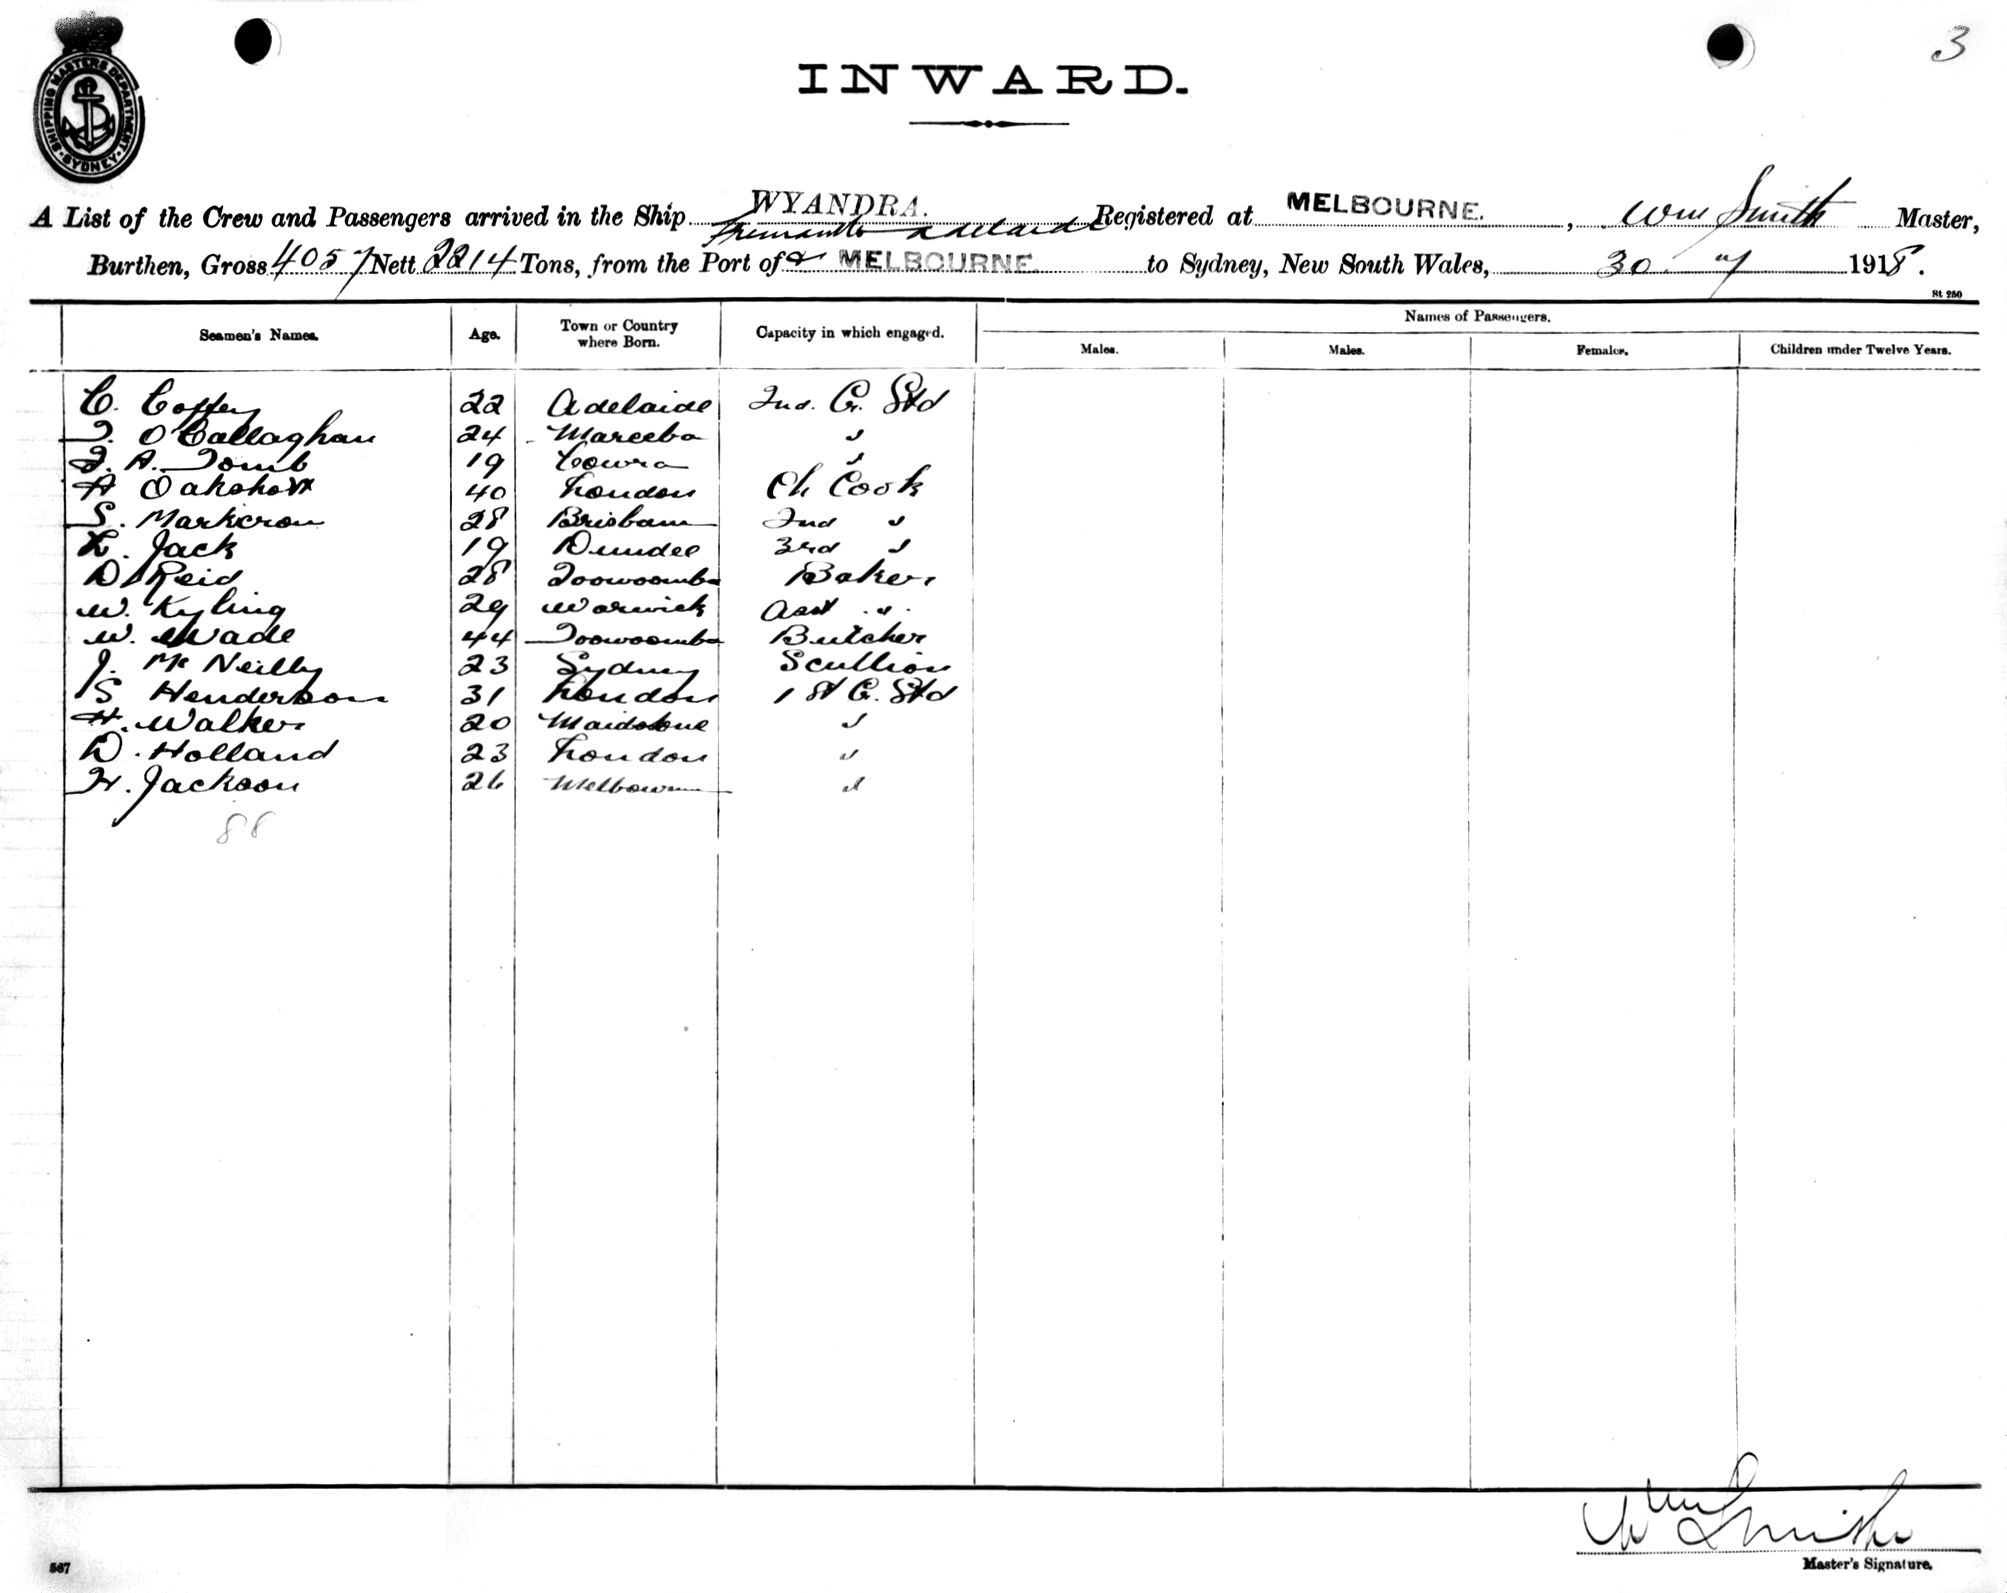 3
SHIPPING MASTERS DEPARTMENT.
SYDNEY
INWARD.
A List of the Crew and Passengers arrived in the Ship WYANDRA. Registered at MELBOURNE. , Wm Smith Master,
Fremantle Adelaide
Burthen, Gross 4057 Nett 2214 Tons, from the Port of & MELBOURNE to Sydney, New South Wales, 30 7 1918.
St 250
Seamen's Names. Age. Town or Country where Born. Capacity in which engaged. Names of Passengers.
Males. Males. Females. Children under Twelve Years.
C. Coffey 22 Adelaide 2nd. Cr. Std
T. O'Callaghan 24 Mareeba "
F. A. Tomb 19 Cowra "
A Oakshott 40 London Ch Cook
S. Markcrow 28 Brisbane 2nd "
L. Jack 19 Dundee 3rd "
D Reid 28 Toowoomba Baker
W. Kyling 29 Warwick Asst "
W. Wade 44 Toowoomba Butcher
J. McNeilly 23 Sydney Scullion
S Henderson 31 London 1st Cr. Std
H. Walker 20 Maidstone "
D. Holland 23 London "
H. Jackson 26 Melbourne "
88
Wm Smith
Master's Signature.
567